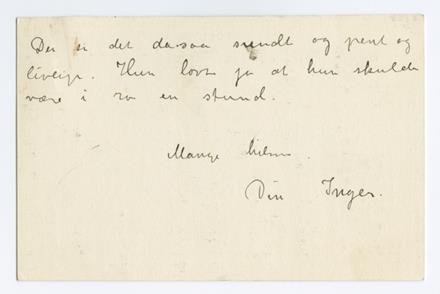 Der er det da saa sundt og pent og
livlig. Hun lovte ja at hun skulde
være i ro en stund.
Mange hilsn.
Din Inger.